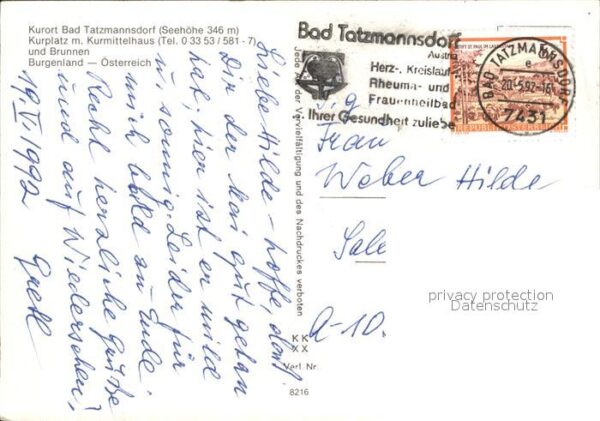 Kurort Bad Tatzmannsdorf (Seehöhe 346 m)
Kurplatz m. Kurmittelhaus (Tel. 0 33 53 / 581 - 7)
und Brunnen
Burgenland – Österreich
Liebe Hilde – hoffe, dass
Dir der Mai gut getan
hat, hier ist er mild
u. sonnig. Leider für
mich bald zu Ende
Recht herzliche Grüße
und auf Wiedersehen!
19.V.1992 Gretl
Jede Art der Vervielfältigung und des Nachdruckes verboten
KK
XX
Verl. Nr.
8216
Bad Tatzmannsdorf
Austria
Herz-, Kreislauf
Rheuma- und
Frauenheilbad
Ihrer Gesundheit zuliebe
BAD TATZMANNSDORF
e
20.-5.92-16
7431
REPUBLIK ÖSTERREICH
S.g.
Frau
Weber Hilde
A-10.
privacy protection
Datenschutz